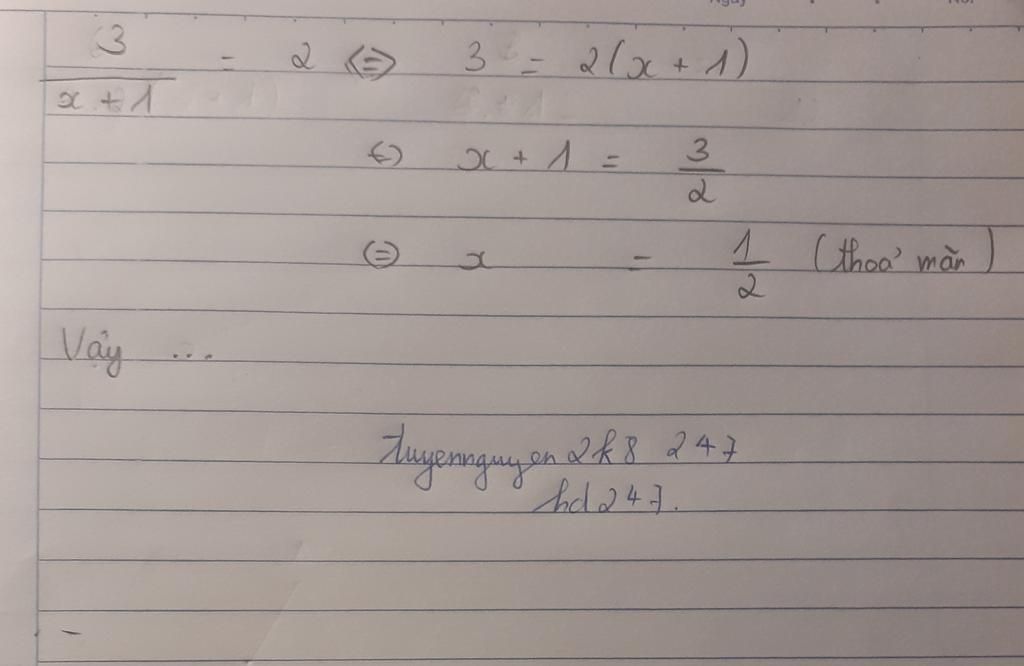 3/(x + 1) = 2 ⇔ 3 = 2(x + 1)
⇔ x + 1 = 3/2
⇔ x = 1/2 (thoả mãn)
Vậy ...
tuyennguyen2k8 247
hd247.